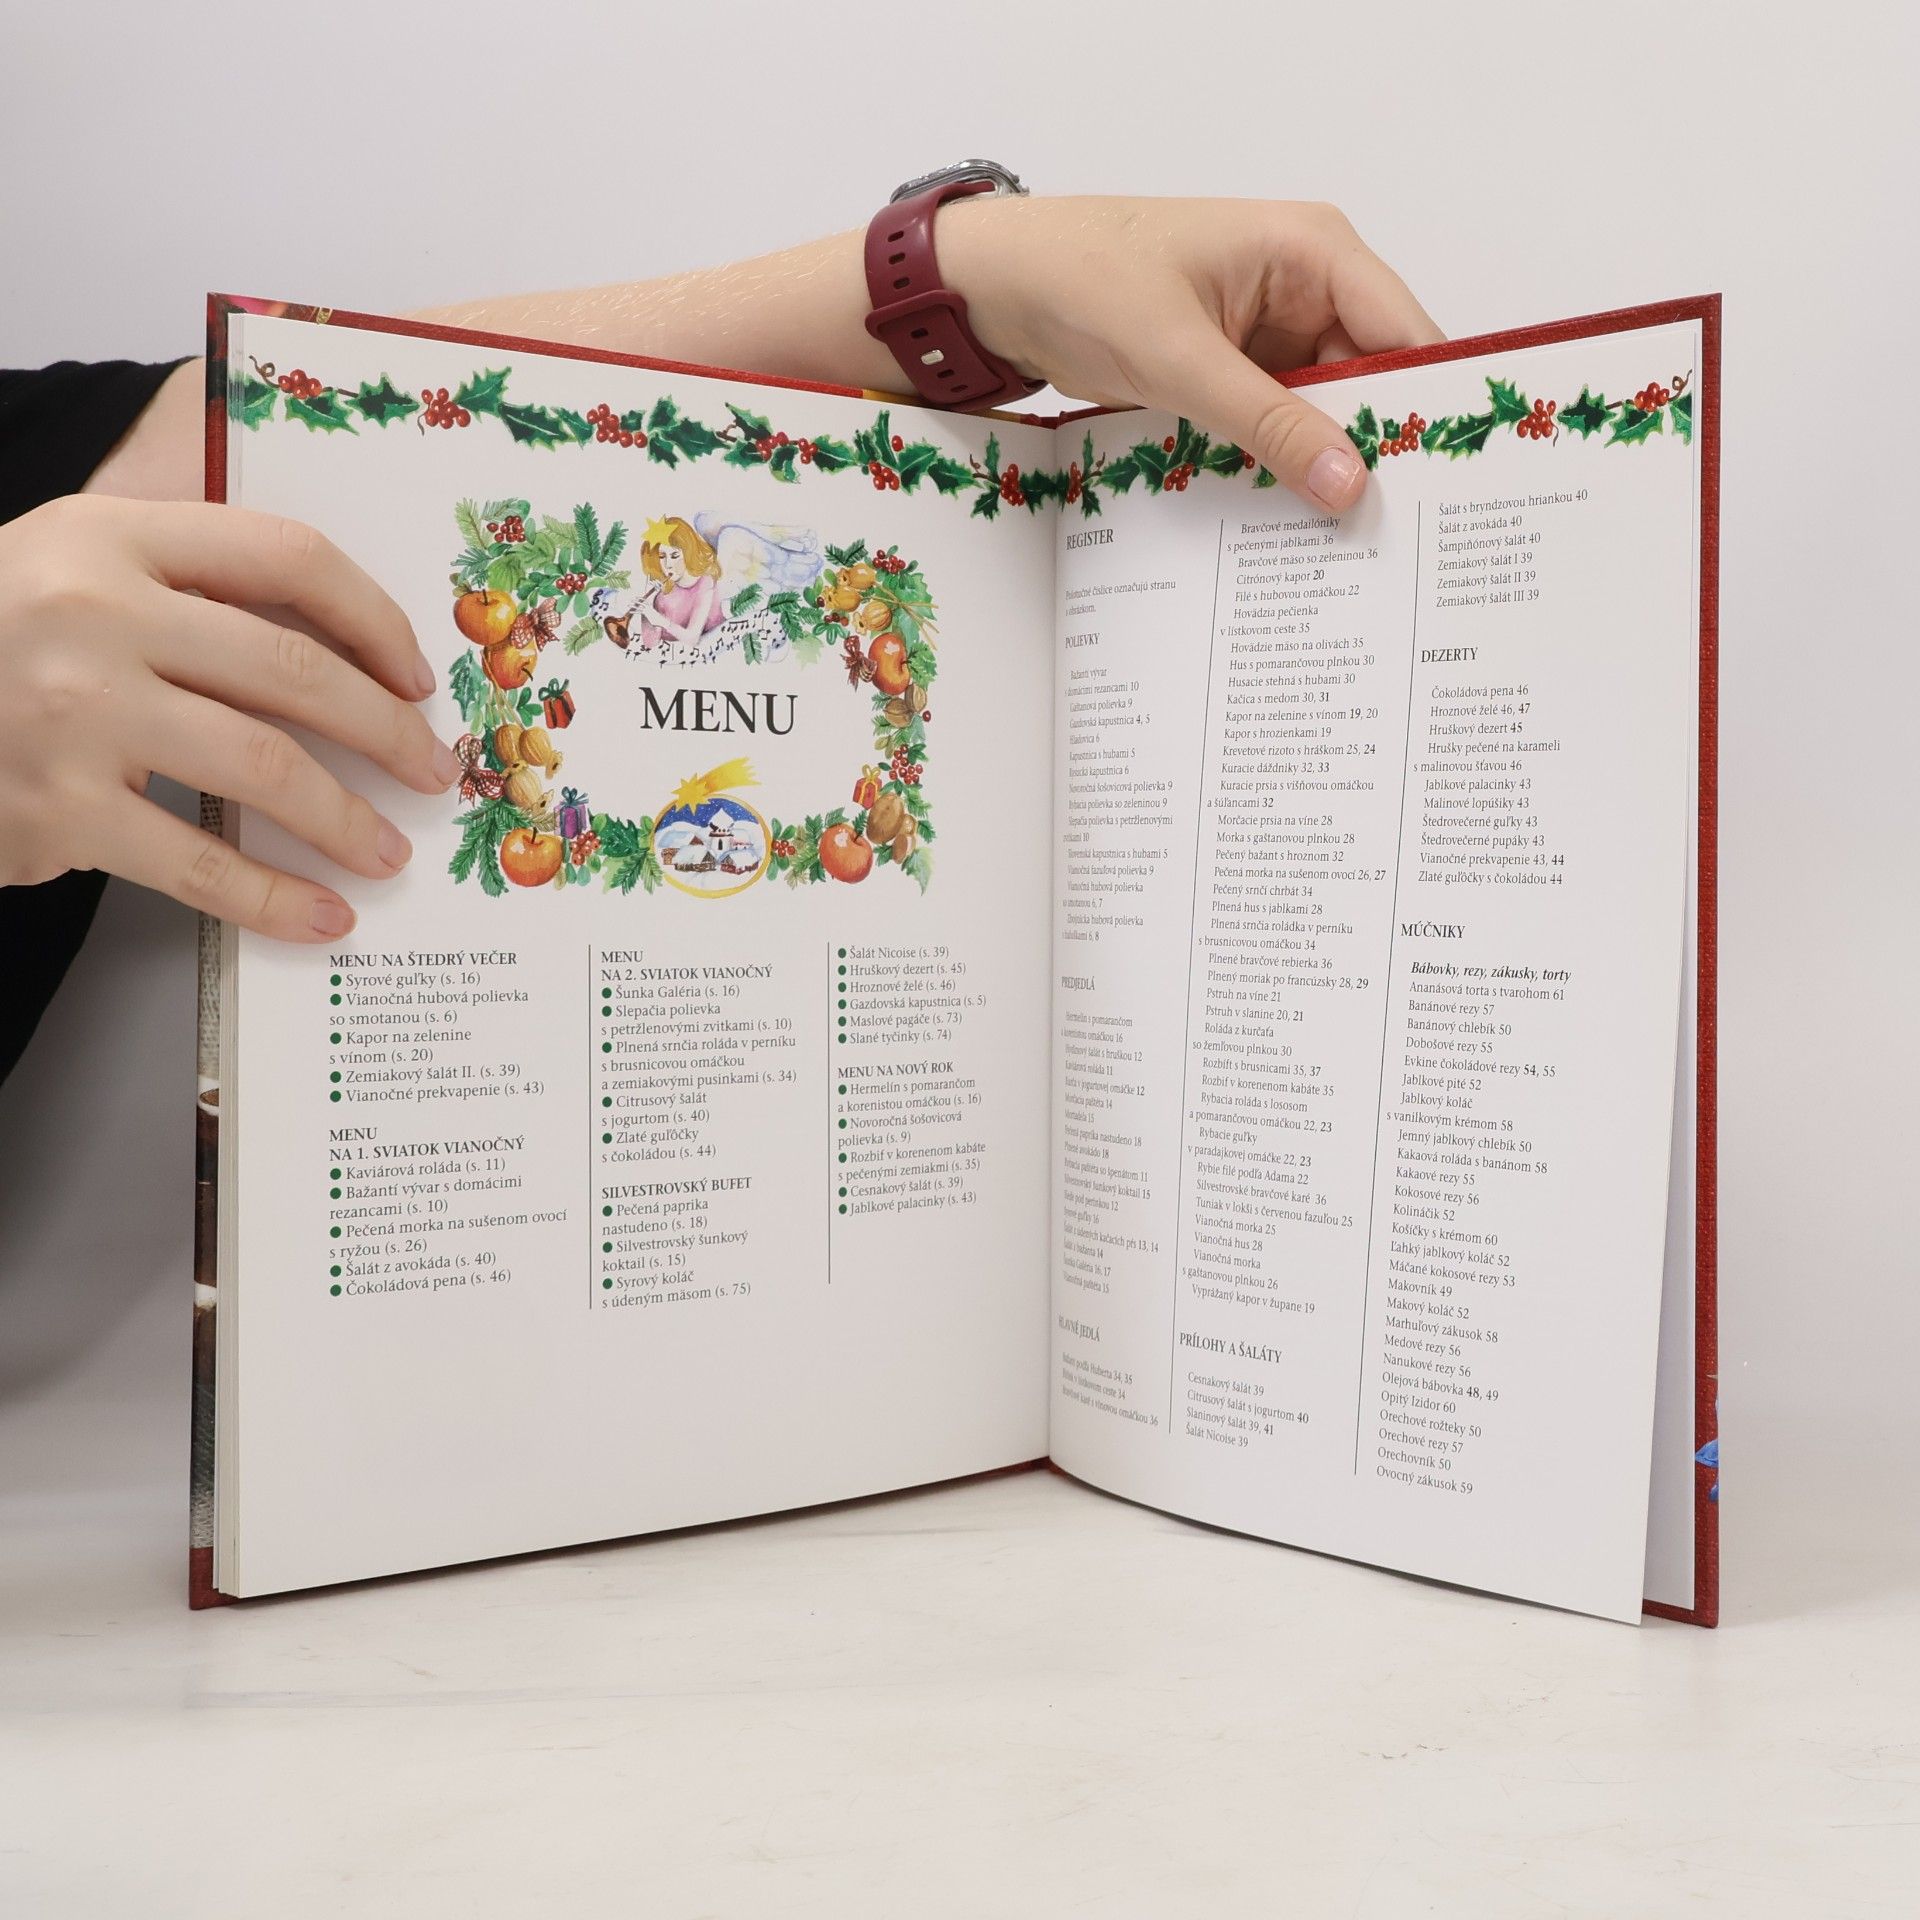 MENU
MENU NA ŠTEDRÝ VEČER
● Syrové guľky (s. 16)
● Vianočná hubová polievka
so smotanou (s. 6)
● Kapor na zelenine
s vínom (s. 20)
● Zemiakový šalát II. (s. 39)
● Vianočné prekvapenie (s. 43)
MENU
NA 1. SVIATOK VIANOČNÝ
● Kaviárová roláda (s. 11)
● Bažantí vývar s domácimi
rezancami (s. 10)
● Pečená morka na sušenom ovocí
s ryžou (s. 26)
● Šalát z avokáda (s. 40)
● Čokoládová pena (s. 46)
MENU
NA 2. SVIATOK VIANOČNÝ
● Šunka Galéria (s. 16)
● Slepačia polievka
s petržlenovými zvitkami (s. 10)
● Plnená srnčia roláda v perníku
s brusnicovou omáčkou
a zemiakovými pusinkami (s. 34)
● Citrusový šalát
s jogurtom (s. 40)
● Zlaté guľôčky
s čokoládou (s. 44)
SILVESTROVSKÝ BUFET
● Pečená paprika
nastudeno (s. 18)
● Silvestrovský šunkový
koktail (s. 15)
● Syrový koláč
s údeným mäsom (s. 75)
● Šalát Nicoise (s. 39)
● Hruškový dezert (s. 45)
● Hroznové želé (s. 46)
● Gazdovská kapustnica (s. 5)
● Maslové pagáče (s. 73)
● Slané tyčinky (s. 74)
MENU NA NOVÝ ROK
● Hermelín s pomarančom
a korenistou omáčkou (s. 16)
● Novoročná šošovicová
polievka (s. 9)
● Rozbif v korenenom kabáte
s pečenými zemiakmi (s. 35)
● Cesnakový šalát (s. 39)
● Jablkové palacinky (s. 43)
REGISTER
Polotučné číslice označujú stranu
s obrázkom.
POLIEVKY
Bažantí vývar
s domácimi rezancami 10
Gaštanová polievka 9
Gazdovská kapustnica 4, 5
Hlašovica 6
Kapustnica s hubami 5
kapustnica 6
Novoročná šošovicová polievka 9
Rybacia polievka so zeleninou 9
Slepačia polievka s petržlenovými
zvitkami 10
Slovenská kapustnica s hubami 5
Vianočná fazuľová polievka 9
Vianočná hubová polievka
so smotanou 6, 7
Zbojnícka hubová polievka
6, 8
PREDJEDLÁ
Hermelín s pomarančom
a korenistou omáčkou 16
šalát s hruškou 12
Kaviárová roláda 11
v jogurtovej omáčke 12
Morčacia paštéta 14
Mortadela 15
Pečená paprika nastudeno 18
Plnené avokádo 18
Rybacia paštéta so špenátom 11
Silvestrovský šunkový koktail 15
12
Syrové guľky 16
Šalát z údených kačacích pŕs 13, 14
Šalát z bažanta 14
Šunka Galéria 16, 17
Vianočná paštéta 15
HLAVNÉ JEDLÁ
Bažant podľa Huberta 34, 35
v lístkovom ceste 34
Bravčové karé s vínovou omáčkou 36
Bravčové medailóniky
s pečenými jablkami 36
Bravčové mäso so zeleninou 36
Citrónový kapor 20
Filé s hubovou omáčkou 22
Hovädzia pečienka
v lístkovom ceste 35
Hovädzie mäso na olivách 35
Hus s pomarančovou plnkou 30
Husacie stehná s hubami 30
Kačica s medom 30, 31
Kapor na zelenine s vínom 19, 20
Kapor s hrozienkami 19
Krevetové rizoto s hráškom 25, 24
Kuracie dáždniky 32, 33
Kuracie prsia s višňovou omáčkou
a šúľancami 32
Morčacie prsia na víne 28
Morka s gaštanovou plnkou 28
Pečený bažant s hroznom 32
Pečená morka na sušenom ovocí 26, 27
Pečený srnčí chrbát 34
Plnená hus s jablkami 28
Plnená srnčia roládka v perníku
s brusnicovou omáčkou 34
Plnené bravčové rebierka 36
Plnený moriak po francúzsky 28, 29
Pstruh na víne 21
Pstruh v slanine 20, 21
Roláda z kurčaťa
so žemľovou plnkou 30
Rozbíft s brusnicami 35, 37
Rozbif v korenenom kabáte 35
Rybacia roláda s lososom
a pomarančovou omáčkou 22, 23
Rybacie guľky
v paradajkovej omáčke 22, 23
Rybie filé podľa Adama 22
Silvestrovské bravčové karé 36
Tuniak v lokši s červenou fazuľou 25
Vianočná morka 25
Vianočná hus 28
Vianočná morka
s gaštanovou plnkou 26
Vyprážaný kapor v župane 19
PRÍLOHY A ŠALÁTY
Cesnakový šalát 39
Citrusový šalát s jogurtom 40
Slaninový šalát 39, 41
Šalát Nicoise 39
Šalát s bryndzovou hriankou 40
Šalát z avokáda 40
Šampiňónový šalát 40
Zemiakový šalát I 39
Zemiakový šalát II 39
Zemiakový šalát III 39
DEZERTY
Čokoládová pena 46
Hroznové želé 46, 47
Hruškový dezert 45
Hrušky pečené na karameli
s malinovou šťavou 46
Jablkové palacinky 43
Malinové lopúšiky 43
Štedrovečerné guľky 43
Štedrovečerné pupáky 43
Vianočné prekvapenie 43, 44
Zlaté guľôčky s čokoládou 44
MÚČNIKY
Bábovky, rezy, zákusky, torty
Ananásová torta s tvarohom 61
Banánové rezy 57
Banánový chlebík 50
Dobošové rezy 55
Evkine čokoládové rezy 54, 55
Jablkové pité 52
Jablkový koláč
s vanilkovým krémom 58
Jemný jablkový chlebík 50
Kakaová roláda s banánom 58
Kakaové rezy 55
Kokosové rezy 56
Kolináčik 52
Košíčky s krémom 60
Ľahký jablkový koláč 52
Máčané kokosové rezy 53
Makovník 49
Makový koláč 52
Marhuľový zákusok 58
Medové rezy 56
Nanukové rezy 56
Olejová bábovka 48, 49
Opitý Izidor 60
Orechové rožteky 50
Orechové rezy 57
Orechovník 50
Ovocný zákusok 59